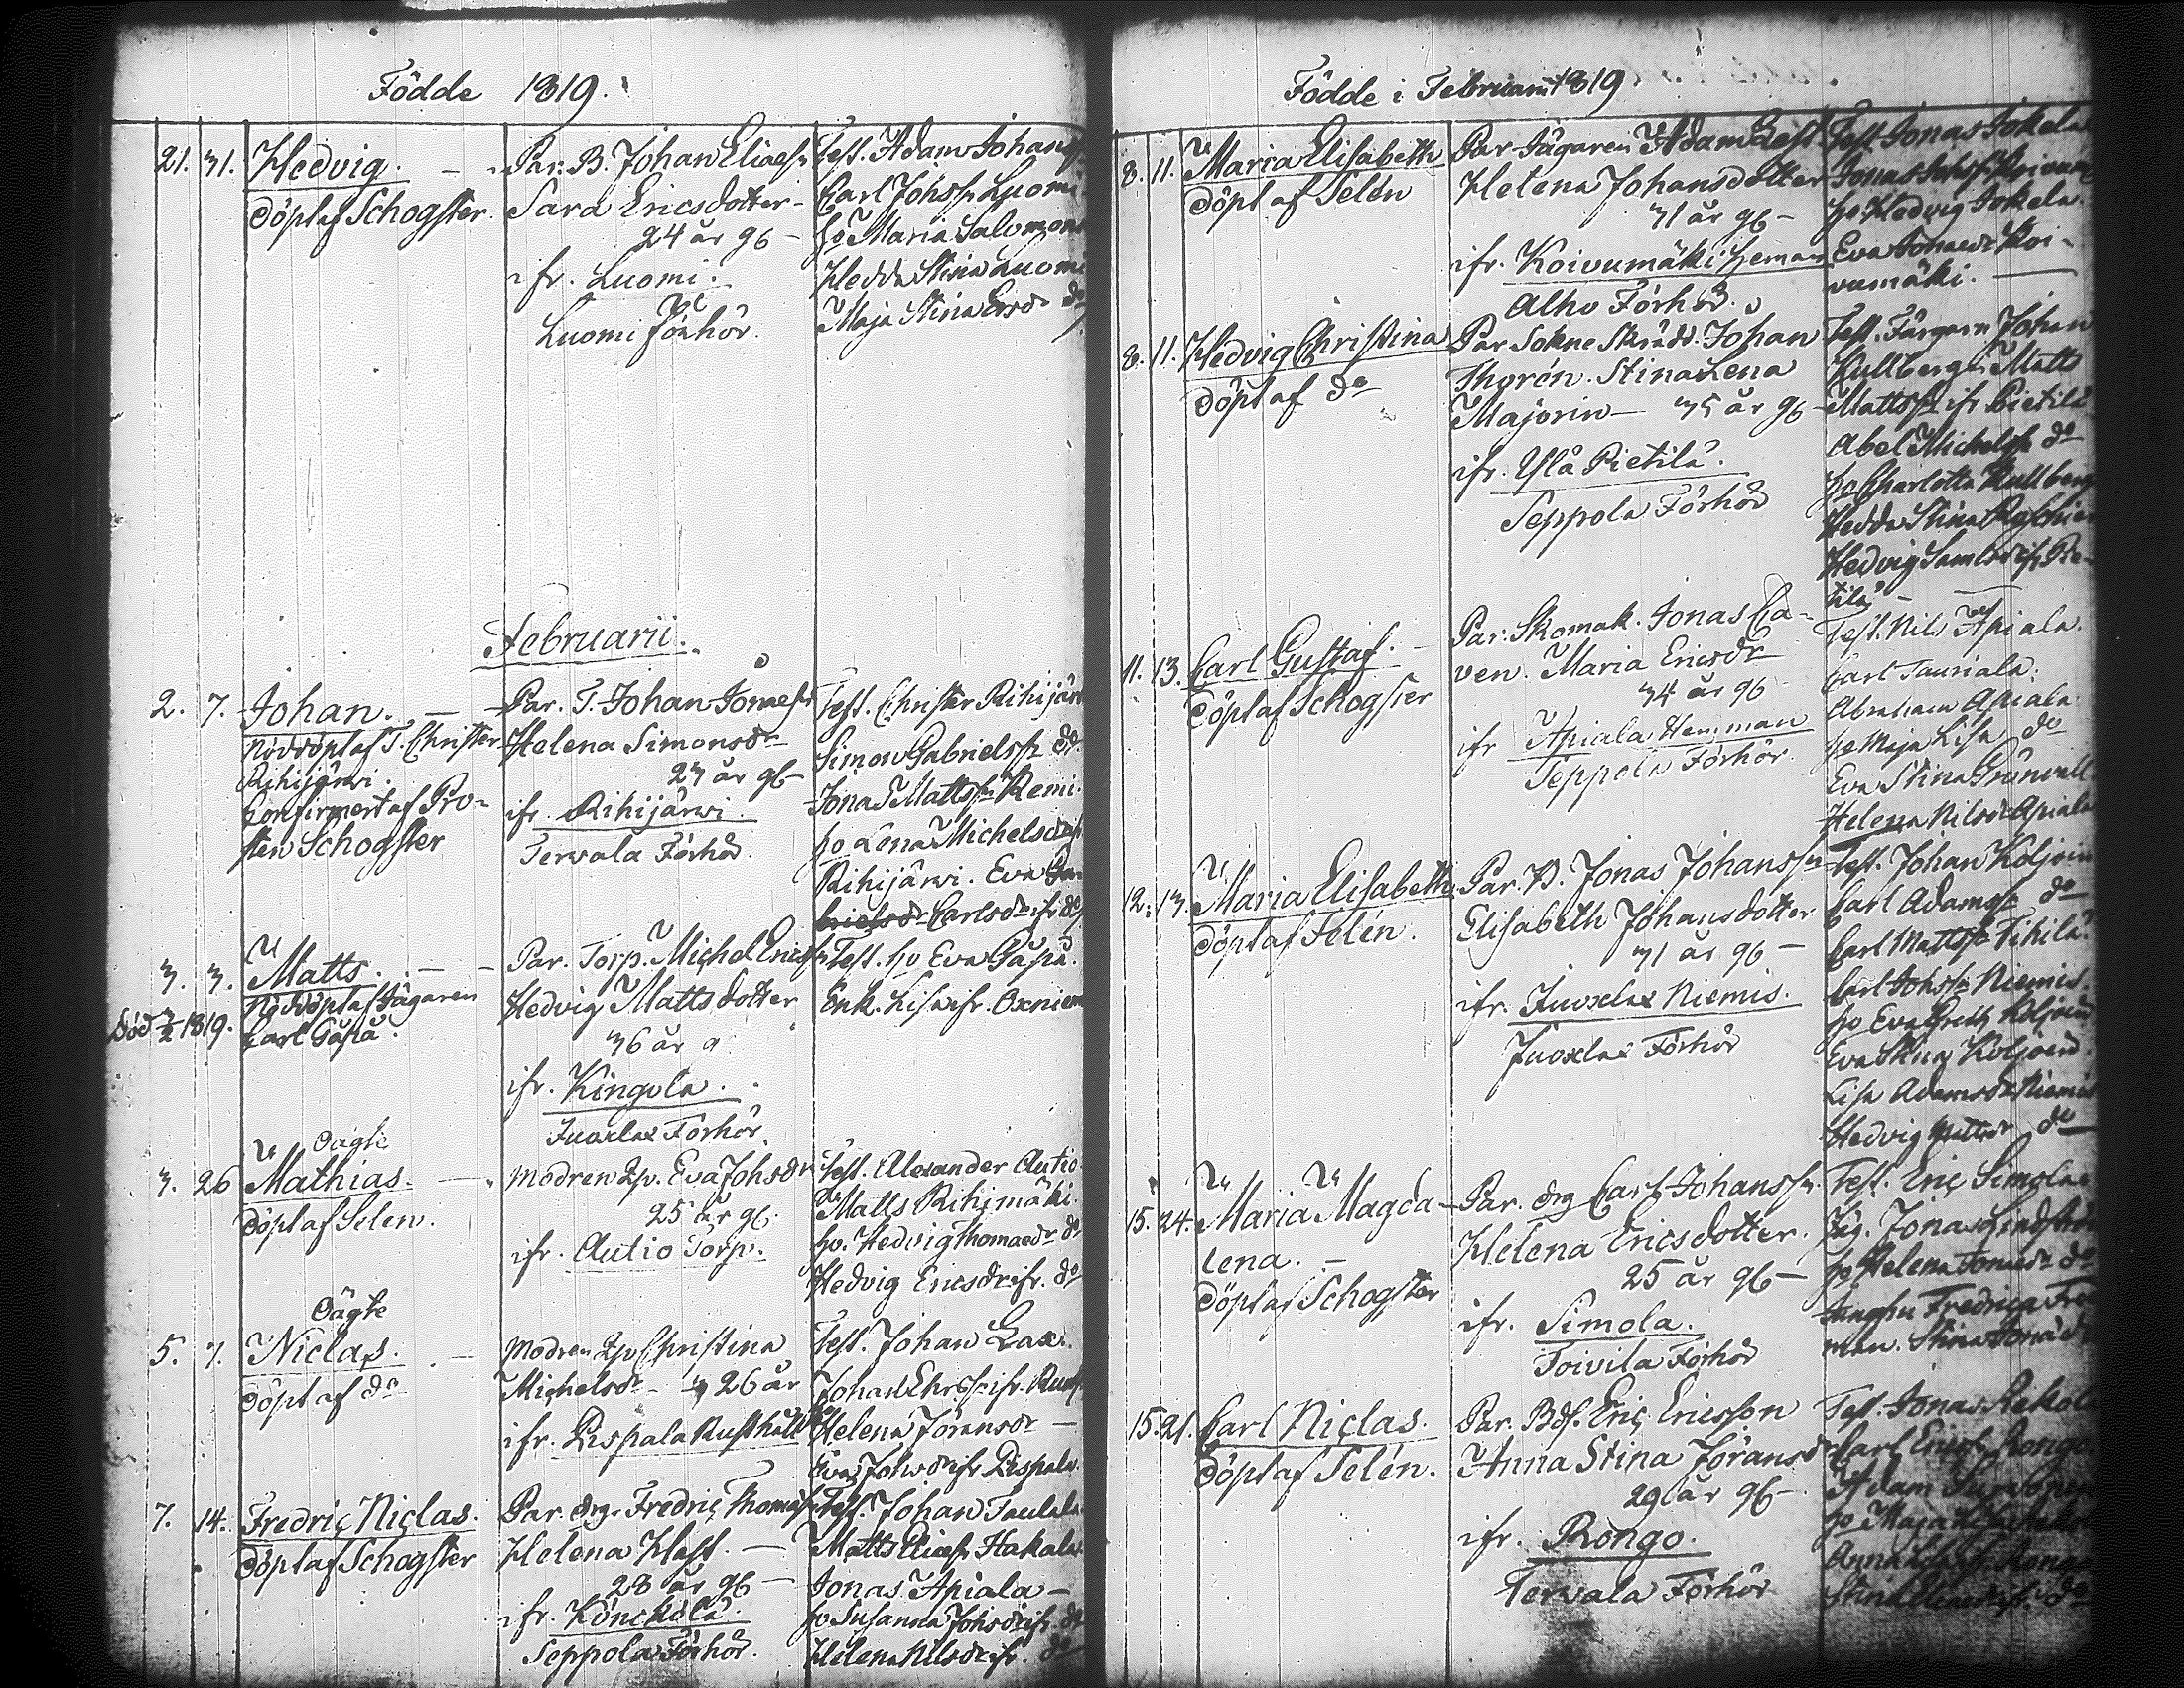 Födde 1819.
21. 31. Hedvig.
döpt af Schogster.
Par. B. Johan Eliaess
Sara Ericsdotter
24 år g6
ifr. Luomi.
Luomi förhör.
Test. Adam Johans
Carl Johss Luomi
ho Maria Salomons
Hedda Stina Luomi
Maja Stina do
Februarii.
2. 7. Johan.
Nöddöpt af T. Christer
Rihijärvi.
Confirmert af Pro-
sten Schogster
Par. T. Johan Jonaess
Helena Simonsdr
23 år g6
ifr. Rihijärvi.
Tervala Förhör.
Test. Christer Rihijär
Simon Gabrielss do
Jonas Mattss Remi
ho Lena Michelsdr
Rihijärvi. Eva
Carlsdr ifr do
3. 3. Matts.
Nöddöpt af Jägaren
Carl Gåpå.
död 3/2 1819.
Par. Torp. Michel Ericss
Hedvig Mattsdotter
36 år
ifr. Kingola.
Juoxlax Förhör.
Test. ho Eva Gåpå.
Enk. Lisa ifr. Oxniem
oägte
3. 26 Mathias.
döpt af Selen.
Modren Eva Johsdr
25 år g6.
ifr. Autio Torp.
Test. Alexander Autio
Matts Rihimäki.
ho. Hedvig Thomaedr do
Hedvig Ericsdr ifr. do
Oägte
5. 7. Niclas.
döpt af do
Modren Christina
Michelsdr 26 år
ifr. Pispala Rusthåll
Test. Johan Lax.
Johan ifr.
Helena Jöransdr
Eva Johsdr ifr Pispala.
7. 14. Fredric Niclas.
döpt af Schogster
Par. drg. Fredric Thomass
Helena Hast.
28 år g6
ifr. Könckölä.
Seppola Förhör.
Test. Johan Taulala
Matts Hakala
Jonas Apiala
ho Susanna Johsdr ifr. do
Helena Nilsdr ifr. do
Födde i Februarii 1819.
8. 11. Maria Elisabeth
döpt af Selén
Par Jägaren Adam
Helena Johansdotter
31 år g6
ifr. Koivumäki heman
Alho Förhör.
Test Jonas Jokela
Jonas
ho Hedvig Jokela.
Eva Jonaedr Koi-
vumäki.
8. 11. Hedvig Christina
döpt af do
Par Sokne Skrädd. Johan
Thorén. Stina Lena
Majorin 35 år g6
ifr. Ylä Pietilä.
Seppola Förhör
Test. Färgarn Johan
Kullberg. Matts
Mattss ifr Pietilä
Abel Michelss do
ho Charlotta Kullberg
Hedda Stina
Hedvig ifr Pie-
tilä
11. 13. Carl Gustaf.
döpt af Schogster
Par. Skomak. Jonas Ca-
ven. Maria Ericsdr
34 år g6
ifr Apiala Hemman
Seppola Förhör.
Test. Nils Apiala.
Carl Tauriala.
Abraham Apiala
ho Maja Lisa do
Eva Stina Grönvall
Helena Nilsdr Apiala
12. 13. Maria Elisabeth
döpt af Selén.
Par. B. Jonas Johanss
Elisabeth Johansdotter
31 år g6
ifr. Juoxlax Niemis.
Juoxlax Förhör
Test. Johan Koljoin
Carl Adamss do
Carl Mattss
Carl Johss Niemis.
ho Eva Koljoin
Eva Stina Koljoin
Lisa Adamsdr Niemis
Hedvig do
15. 24. Maria Magda-
lena.
döpt af Schogster
Par. drg Carl Johanss.
Helena Ericsdotter.
25 år g6
ifr. Simola.
Toivila Förhör
Test. Eric Simola
Jonas
ho Helena Jonaedr do
Fredrica
Stina
15. 21. Carl Niclas.
döpt af Selén.
Par. Eric Ericsson
Anna Stina Jöransdr
29 år g6
ifr. Rongo.
Tervala Förhör
Test. Jonas
Carl Rongo
Adam
ho Maja
Anna
Stina do